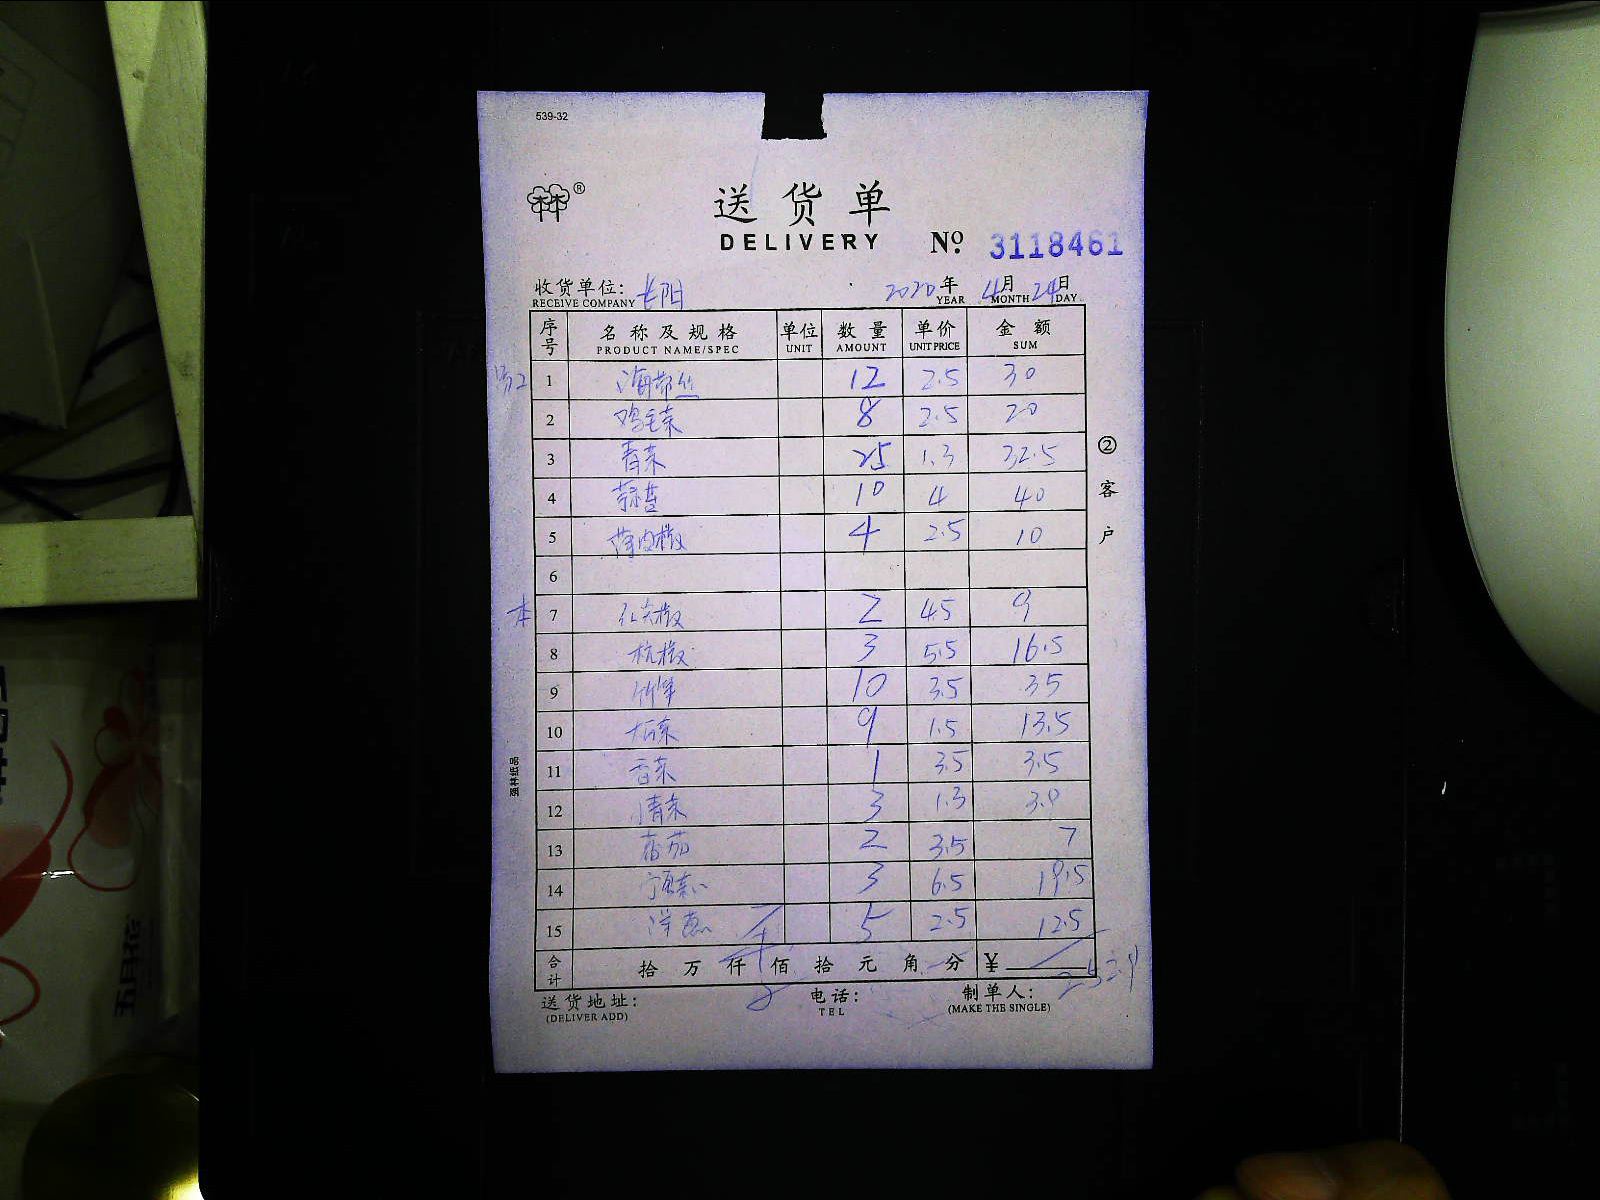 539-32
®
送货单
DELIVERY
№ 3118461
收货单位: 长阳 2020年 4月 24日
RECEIVE COMPANY YEAR MONTH DAY
序号 名称及规格 单位 数量 单价 金额
PRODUCT NAME/SPEC UNIT AMOUNT UNIT PRICE SUM
1 海带丝 12 2.5 30
2 鸡毛菜 8 2.5 20
3 青菜 25 1.3 32.5
4 10 4 40
5 薄皮椒 4 2.5 10
6
本 7 红尖椒 2 4.5 9
8 杭椒 3 5.5 16.5
9 10 3.5 35
10 9 1.5 13.5
11 香菜 1 3.5 3.5
12 青菜 3 1.3 3.9
13 番茄 2 3.5 7
14 3 6.5 19.5
15 洋葱 5 2.5 12.5
合计 拾 万 仟 佰 拾 元 角 分 ¥
送货地址: 电话: 制单人:
(DELIVER ADD) TEL (MAKE THE SINGLE)
②客户
强林纸品